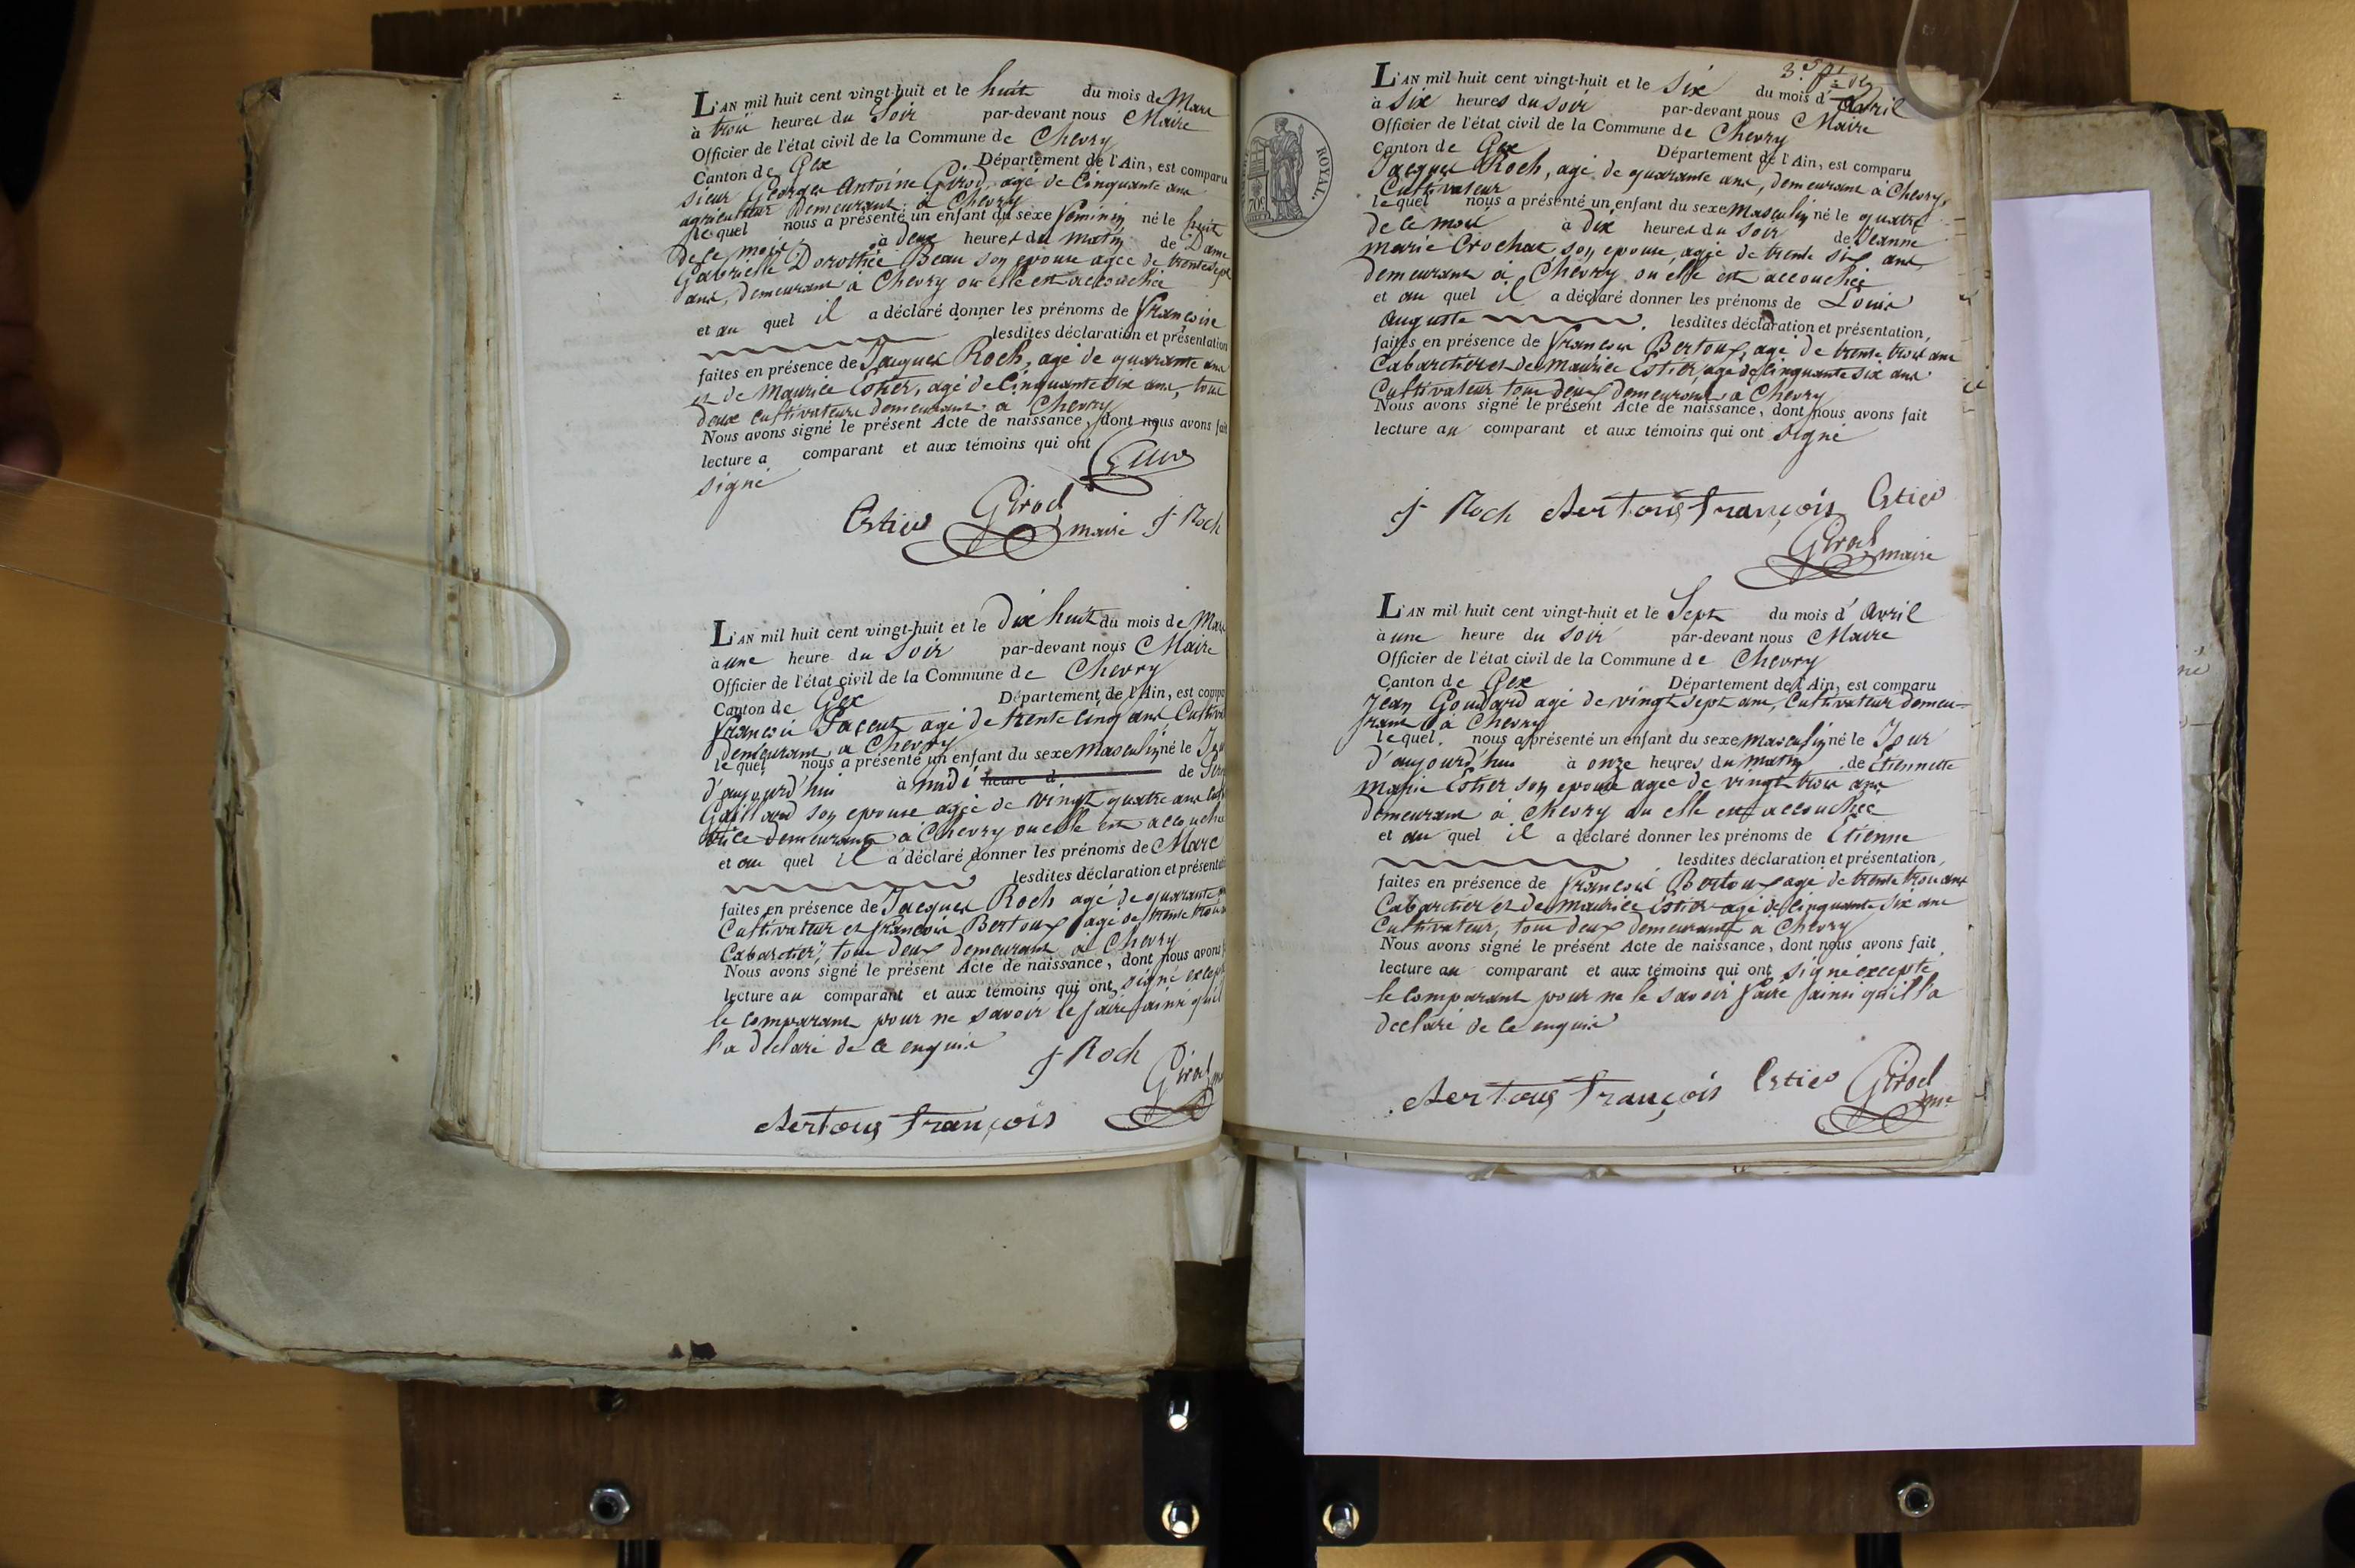 L'AN mil huit cent vingt-huit et le huit du mois de Mars
à trois heures du Soir par-devant nous Maire
Officier de l'état civil de la Commune de Chevry
Canton de Gex Département de l'Ain, est comparu
sieur Georges Antoine Girod, agé de Cinquante ans
agriculteur demeurant à Chevry
lequel nous a présenté un enfant du sexe feminin né le huit
de ce mois, à deux heures du matin de Dame
Gabrielle Dorothée Beau son epouse agée de trente sept
ans, demeurant à Chevry ou elle est accouchée
et au quel il a déclaré donner les prénoms de Françoise
lesdites déclaration et présentation
faites en présence de Jacques Roch, agé de quarante ans
et de Maurice Estier, agé de Cinquante six ans, tous
deux cultivateurs demeurant à Chevry
Nous avons signé le présent Acte de naissance, dont nous avons fait
lecture a comparant et aux témoins qui ont
signé
Estier Girod maire J Roch
L'AN mil huit cent vingt-huit et le dix huit du mois de Mars
à une heure du Soir par-devant nous Maire
Officier de l'état civil de la Commune de Chevry
Canton de Gex Département de l'Ain, est comp
François agé de trente cinq ans Cultiva
demeurant à Chevry
lequel nous a présenté un enfant du sexe masculin né le Jour
d'aujourd'hui à midi heure d de
Gaillard son epouse agée de vingt quatre ans
demeurant à Chevry ou elle est accouchée
et au quel il a déclaré donner les prénoms de Marc
lesdites déclaration et présentation
faites en présence de Jacques Roch agé de quarante ans
Cultivateur et François Bertoux agé de trente trois
Cabaretier, tous deux demeurant à Chevry
Nous avons signé le présent Acte de naissance, dont nous avons
lecture au comparant et aux témoins qui ont signé excepté
le comparant pour ne savoir le faire ainsi qu'il
l'a déclaré de ce enquis
J Roch
Girod
Bertoux François
L'AN mil huit cent vingt-huit et le Six du mois d'Avril
à Six heures du Soir par-devant nous Maire
Officier de l'état civil de la Commune de Chevry
Canton de Gex Département de l'Ain, est comparu
Jacques Roch, agé de quarante ans, demeurant à Chevry,
Cultivateur
lequel nous a présenté un enfant du sexe masculin né le quatre
de ce mois à dix heures du soir de Jeanne
Marie Crochat, son epouse, agée de trente six ans,
demeurant à Chevry ou elle est accouchée
et au quel il a déclaré donner les prénoms de Louis
Auguste lesdites déclaration et présentation,
faites en présence de François Bertoux, agé de trente trois ans
Cabaretier et de Maurice Estier, agé de Cinquante six ans
Cultivateur tous deux demeurant à Chevry
Nous avons signé le présent Acte de naissance, dont nous avons fait
lecture au comparant et aux témoins qui ont signé
J Roch Bertoux François Estier
Girod maire
ROYAL
L'AN mil huit cent vingt-huit et le Sept du mois d'Avril
à une heure du Soir par-devant nous Maire
Officier de l'état civil de la Commune de Chevry
Canton de Gex Département de l'Ain, est comparu
Jean Goudard agé de vingt sept ans, Cultivateur demeu-
rant à Chevry
lequel nous a présenté un enfant du sexe masculin né le Jour
d'aujourd'hui à onze heures du matin de Etiennette
Marie Estier son epouse agée de vingt trois ans
demeurant à Chevry ou elle est accouchée
et au quel il a déclaré donner les prénoms de Etienne
lesdites déclaration et présentation,
faites en présence de François Bertoux agé de trente trois ans
Cabaretier et de Maurice Estier agé de Cinquante Six ans
Cultivateur, tous deux demeurant à Chevry
Nous avons signé le présent Acte de naissance, dont nous avons fait
lecture au comparant et aux témoins qui ont signé excepté
le comparant pour ne le savoir faire ainsi qu'il l'a
declaré de ce enquis
Bertoux François Estier Girod